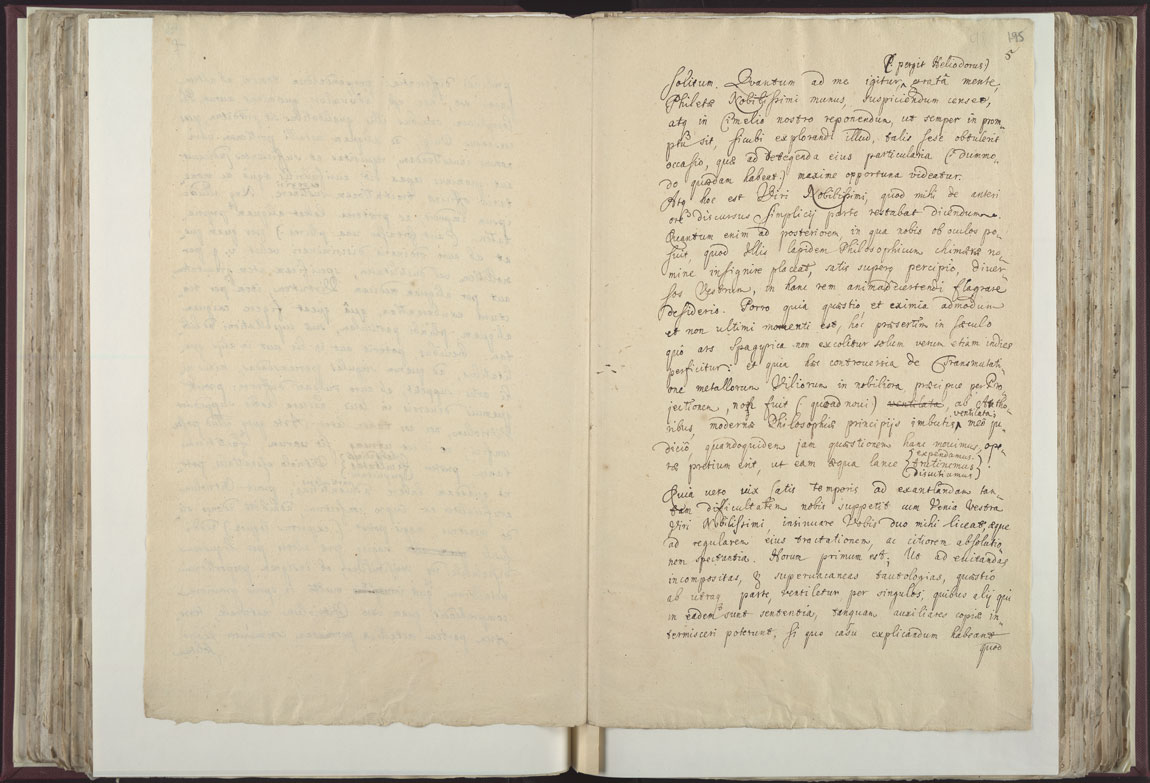 195
5
(: pergit Heliodorus)
solitum. Quantum ad me igitur, gratâ mente,
Philetæ Nobilissimi munus, suspiciendum censeo,
atq in Cimelio nostro reponendum, ut semper in prom-
ptu sit, sicubi explorandi illud, talis sese obtulerit
occasio, quæ ad detegenda eius particularia (dummo-
do quædam habeat) maxime opportuna videatur.
Atq hoc est Viri Nobilissimi, quod mihi de anteri
ori discursus Simplicij parte restabat dicendum.
Quantum enim ad posteriorem, in qua nobis ob oculos po-
suit, quod Illis lapidem Philosophicum chimæræ no-
mine insignire placeat, satis superq percipio, diver
sos Vestrum, in hanc rem animadvertendi flagrare
desiderio. Porro quia quæstio et eximia admodum
et non ultimi momenti est, hoc præsertim in sæculo
quo ars Spagyrica non excolitur solum verum etiam indies
perficitur: et quia hæc controversia de Transmutati-
one metallorum Viliorum in nobiliora præcipue per Pro
jectionem, non fuit (quoad novi) ventilata, ab Autho-
ribus, modernæ Philosophiæ principijs imbutis ventilata, meo ju-
dicio, quandoquidem jam quæstionem hanc movimus, ope-
expendamus.
ræ pretium erit, ut eam æqua lance trutinemus.
discutiamus
Quia vero vix satis temporis ad exantlandam tan-
tam difficultatem nobis suppetit cum Venia Vestra
Viri Nobilissimi, insinuare Vobis duo mihi liceat, æque
ad regularem eius tractationem, ac citiorem absolutio
nem spectantia. Horum primum est; Ut ad evitandas
incompositas, & supervacaneas tautologias, quæstio
ab utraq parte ventiletur per singulos; quibus alij qui
in eadem sunt sententia, tanquam auxiliares copiæ in-
termisceri poterunt, si quo casu explicandum habeant
quod